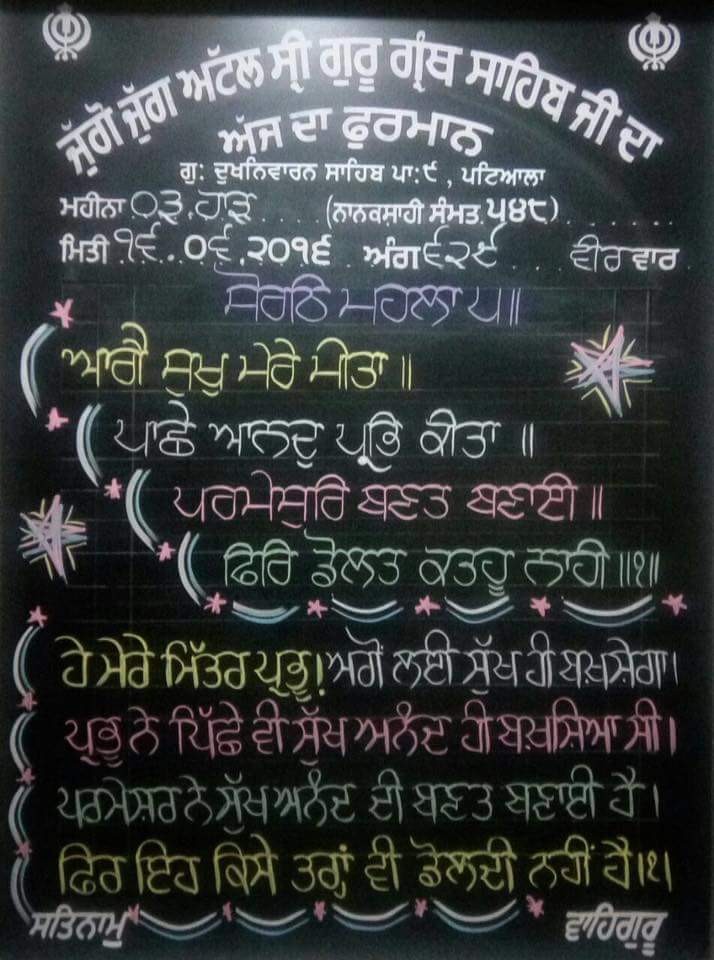 ਜੁੱਗੋ ਜੁੱਗ ਅਟੱਲ ਸ੍ਰੀ ਗੁਰੂ ਗ੍ਰੰਥ ਸਾਹਿਬ ਜੀ ਦਾ
ਅੱਜ ਦਾ ਫੁਰਮਾਨ
ਗੁ: ਦੁਖਨਿਵਾਰਨ ਸਾਹਿਬ ਪਾ:੯ , ਪਟਿਆਲਾ
ਮਹੀਨਾ ੦੩.ਹਾੜ (ਨਾਨਕਸ਼ਾਹੀ ਸੰਮਤ ੫੪੮)
ਮਿਤੀ ੧੬.੦੬.੨੦੧੬ ਅੰਗ ੬੨੯ ਵੀਰਵਾਰ
ਸੋਰਠਿ ਮਹਲਾ ੫॥
ਆਗੈ ਸੁਖੁ ਮੇਰੇ ਮੀਤਾ ॥
ਪਾਛੇ ਆਨਦੁ ਪ੍ਰਭਿ ਕੀਤਾ ॥
ਪਰਮੇਸੁਰਿ ਬਣਤ ਬਣਾਈ ॥
ਫਿਰਿ ਡੋਲਤ ਕਤਹੂ ਨਾਹੀ ॥੧॥
ਹੇ ਮੇਰੇ ਮਿੱਤਰ ਪ੍ਰਭੂ! ਅਗੋਂ ਲਈ ਸੁੱਖ ਹੀ ਬਖ਼ਸ਼ੇਗਾ।
ਪ੍ਰਭੂ ਨੇ ਪਿੱਛੇ ਵੀ ਸੁੱਖ ਅਨੰਦ ਹੀ ਬਖ਼ਸ਼ਿਆ ਸੀ।
ਪਰਮੇਸ਼ਰ ਨੇ ਸੁੱਖ ਅਨੰਦ ਦੀ ਬਣਤ ਬਣਾਈ ਹੈ।
ਫਿਰ ਇਹ ਕਿਸੇ ਤਰ੍ਹਾਂ ਵੀ ਡੋਲਦੀ ਨਹੀਂ ਹੈ।੧।
ਸਤਿਨਾਮੁ ਵਾਹਿਗੁਰੂ